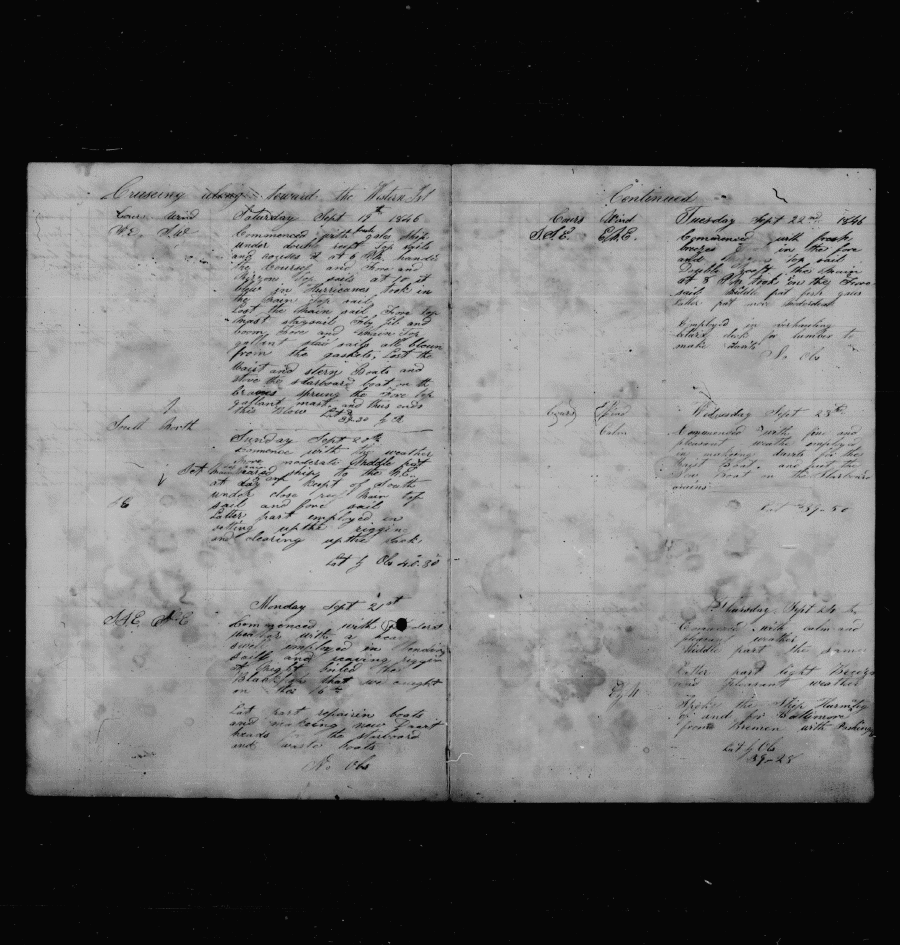 Cruseing along toward the Western Isl
Cours Wind Saturday Sept 19th 1846
Commenced with fresh gales ship
under double reeft top sails
and courses at 6 P.M. handed
the Courses and Fore and
Mizzon top sails at 10 it
blew in Hurricanes took in
the main top sail
Lost the Main sail Fore top
mast staysail Fly jib and
boom Fore and main top
gallant sails all blown
from the gaskets, Lost the
Waist and stern Boats and
stove the starboard boat on the
cranes sprung the Fore top
gallant mast and thus ends
this Blow Lat
39-30 by
South North
Sunday Sept 20th
Commence with the weather
more moderate Middle part
ship to the
at day Kept of South
under close reeft Main top
sail and fore sail
Latter part employed in
setting up the riggin
and clearing up the deck
Lat by Obs 40-30
Monday Sept 21st
S.S.E.
Commenced with
weather with a
swell employed in
and riggin
at Eaight
Blackfish that we caught
on the 16th
Lat part repairin boats
and makeing new
heads for the starboard
and waste boats
No Obs
Continued
Cours Wind Tuesday Sept 22nd 1846
S.S.E. E.N.E. Commenced with fresh
breezes in the fore
and top sail
Double reeft the main
at 8 P.M. took in the Fore
sail Middle part fresh gales
Latter part more Moderate
Employed in overhauling
deck for lumber to
make
No Obs
Cours Wind Wednesday Sept 23rd
Calm Commenced with fine and
pleasant weather employed
in makeing for the
Waist Boat, and put the
Boat on the Starboard
crains
Lat 39-50
Thursday Sept 24th
Commenced with calm and
pleasant weather
Middle part the same
Latter part light Breezes
and pleasant weather
Spoke the Ship Harmony
of and for Baltimore
from Bremen with
Lat by Obs
39-28